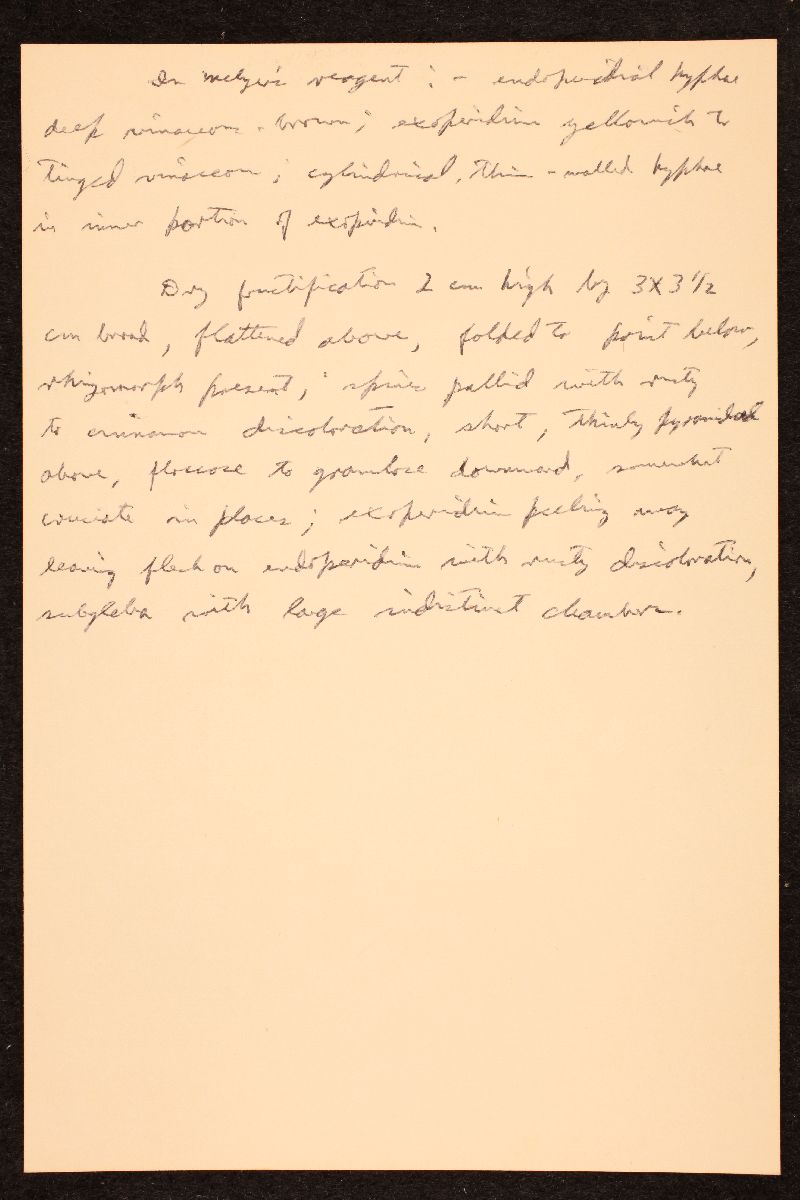 In Melzer's reagent : - endoperidial hyphae
deep vinaceous - brown ; exoperidium yellowish to
tinged vinaceous ; cylindrical, thin - walled hyphae
in inner portion of exoperidium.
Dry fructification 2 cm high by 3 x 3 1/2
cm broad, flattened above, folded to point below,
rhizomorph present, ; spines pallid with rusty
to cinnamon discoloration, short, thinly pyramidal
above, floccose to granulose downward, somewhat
cruciate in places ; exoperidium peeling away
leaving flesh on endoperidium with rusty discoloration,
subgleba with large indistinct chambers.